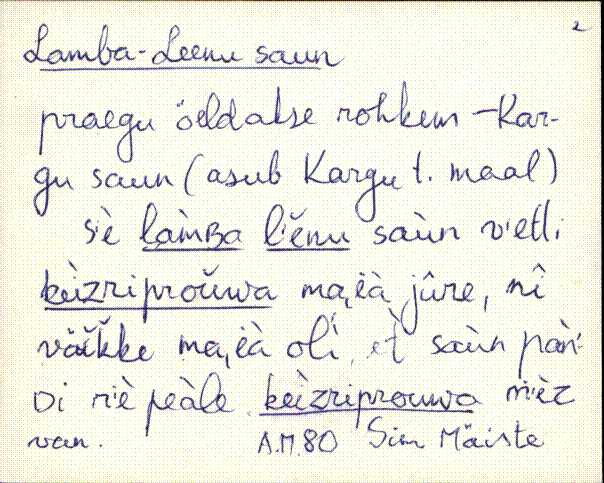 2
Lamba-Leenu saun
praegu öeldakse rohkem – Kar-
gu saun (asub Kargu t. maal)
s'è làmʙa l'ĕnu saùn v'etli
kèizriprŏuwa ma,èà jûre, nî
väĭkke ma,èà olí, et saùn pàn'-
DI r'è peàle. kèizriprouwa m'èz
van. A.M.80 Siim Mäiste